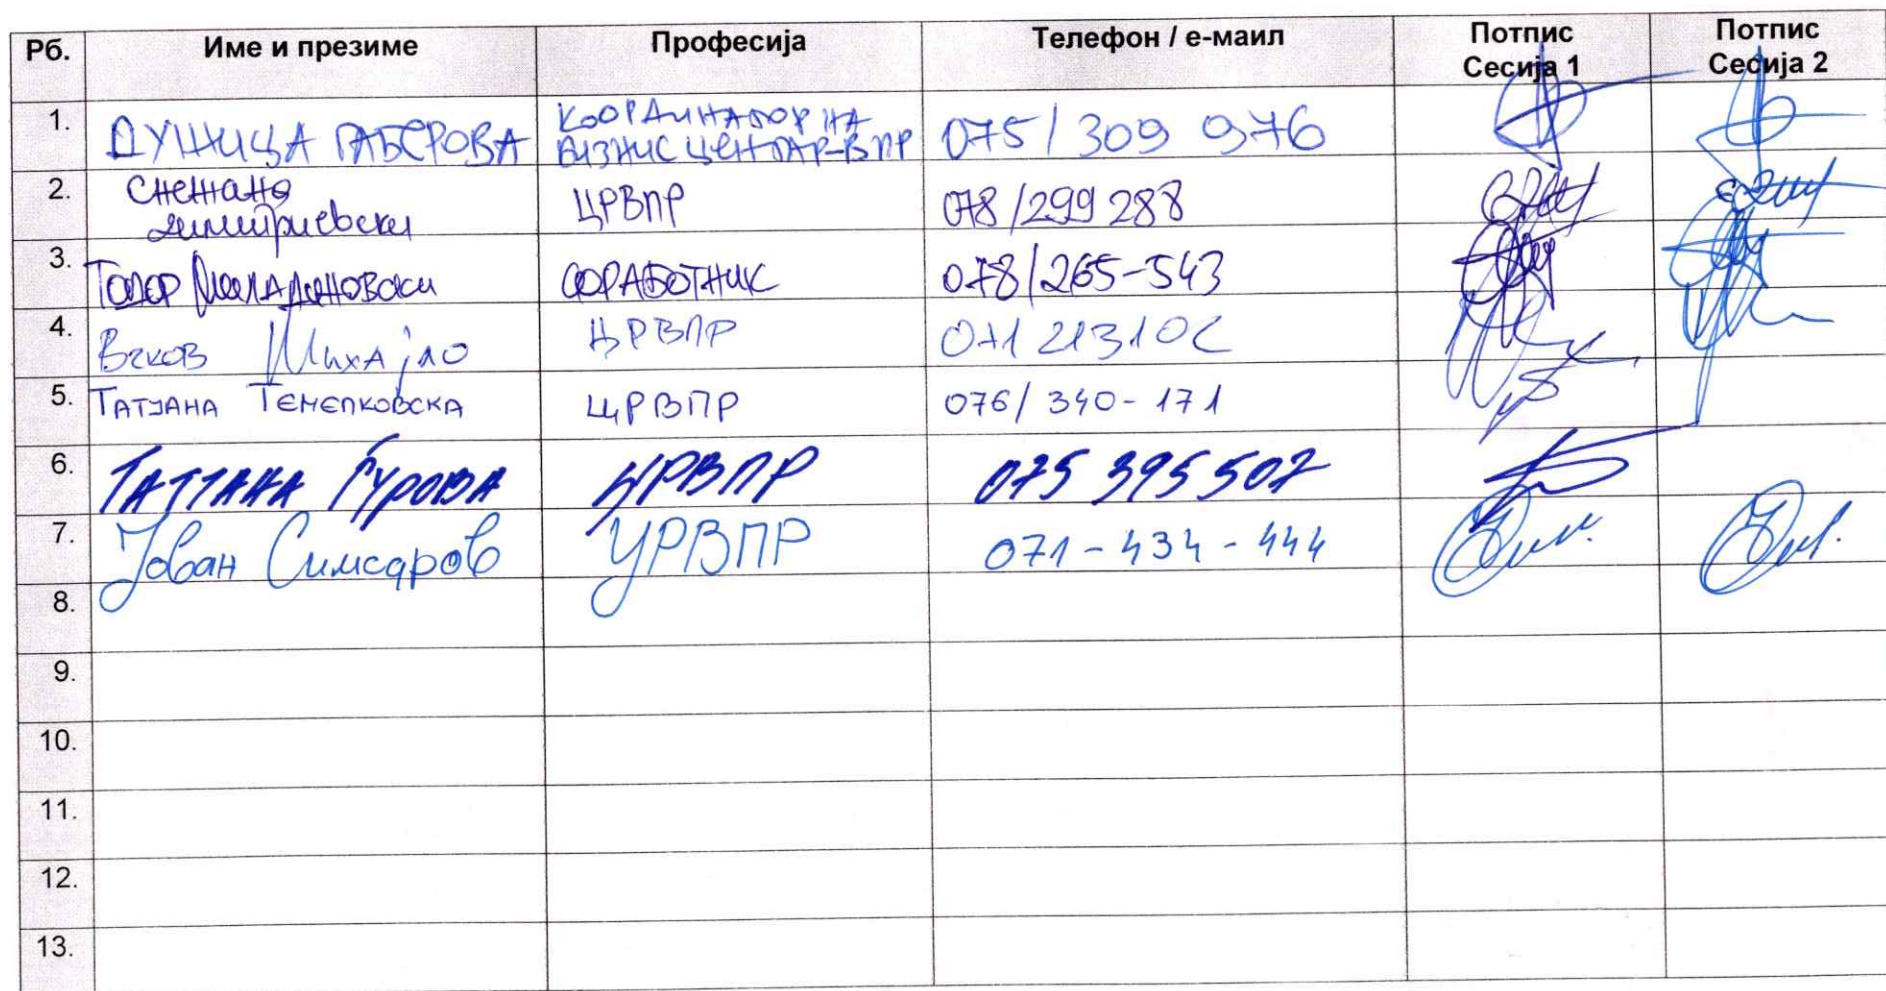 Рб. Име и презиме Професија Телефон / е-маил Потпис Сесија 1 Потпис Сесија 2
1. ДУШИЦА ГАБЕРОВА КООРДИНАТОР НА БИЗНИС ЦЕНТАР-ВПР 075/309 976
2. Снежана Димитриевски ЦРВПР 078/299 288
3. ТОДОР Младеновски СОРАБОТНИК 078/265-543
4. Михајло ЦРВПР
5. ТАТЈАНА ТЕМЕЛКОВСКА ЦРВПР 076/340-171
6. ТАТЈАНА ЃУРОВА ЦРВПР 075 395 507
7. Јован Симсаров ЦРВПР 071-434-444
8.
9.
10.
11.
12.
13.